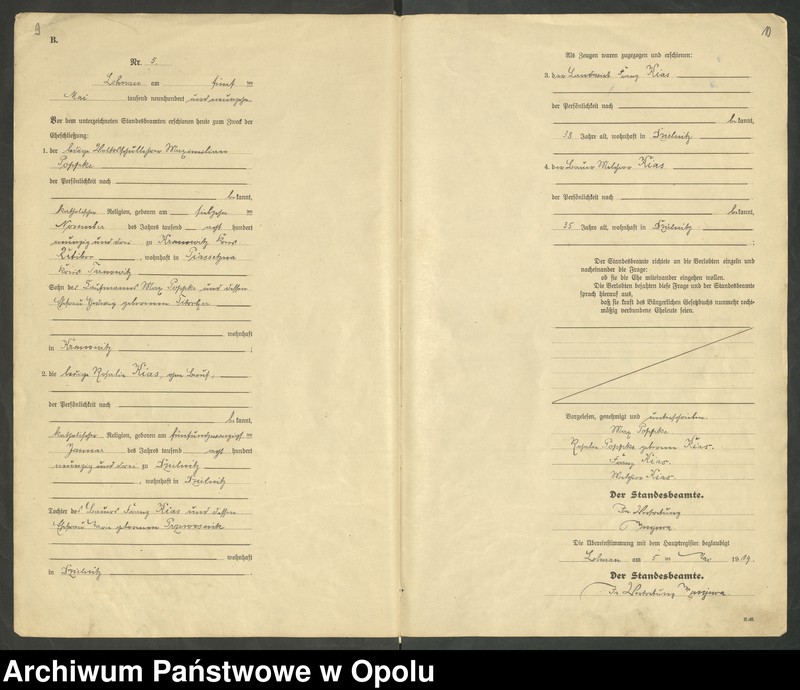 9
B.
Nr. 5.
Lohnau am fünf ten
Mai tausend neunhundert und neunzehn
Vor dem unterzeichneten Standesbeamten erschienen heute zum Zweck der
Eheschließung:
1. der ledige Volksschullehrer Maximilian
Poppke
der Persönlichkeit nach
bekannt,
katholischer Religion, geboren am siebzehn ten
November des Jahres tausend acht hundert
neunzig und drei zu Kranowitz Kreis
Ratibor, wohnhaft in Piassetzna
Kreis Tarnowitz
Sohn des Kaufmanns Max Poppke und dessen
Ehefrau Hedwig geborenen
wohnhaft
in Kranowitz;
2. die ledige Rosalie Kias, ohne Beruf,
der Persönlichkeit nach
bekannt,
katholischer Religion, geboren am fünfundzwanzigst ten
Januar des Jahres tausend acht hundert
neunzig und drei zu Dzielnitz
, wohnhaft in Dzielnitz
Tochter des Bauers Franz Kias und dessen
Ehefrau geborenen
wohnhaft
in Dzielnitz
10
Als Zeugen waren zugezogen und erschienen:
3. der Landwirt Franz Kias
der Persönlichkeit nach
bekannt,
38 Jahre alt, wohnhaft in Dzielnitz
4. der Bauer Melchior Kias
der Persönlichkeit nach
bekannt,
35 Jahre alt, wohnhaft in Dzielnitz
;
Der Standesbeamte richtete an die Verlobten einzeln und
nacheinander die Frage:
ob sie die Ehe miteinander eingehen wollen.
Die Verlobten bejahten diese Frage und der Standesbeamte
sprach hierauf aus,
daß sie kraft des Bürgerlichen Gesetzbuchs nunmehr recht-
mäßig verbundene Eheleute seien.
Vorgelesen, genehmigt und unterschrieben
Max Poppke
Rosalie Poppke geborene Kias.
Franz Kias.
Melchior Kias.
Der Standesbeamte.
In Vertretung
Die Übereinstimmung mit dem Hauptregister beglaubigt
Lohnau am 5 ten Mai 1919.
Der Standesbeamte.
In Vertretung
Archiwum Państwowe w Opolu